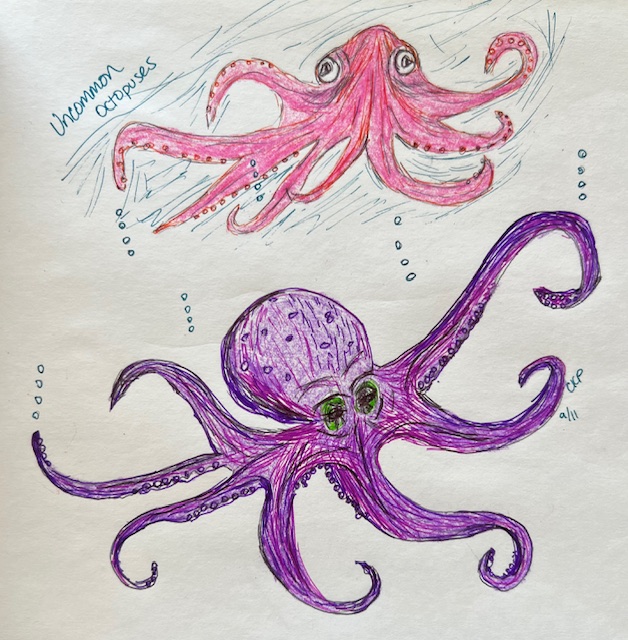 Uncommon
octopuses
CKP
9/11